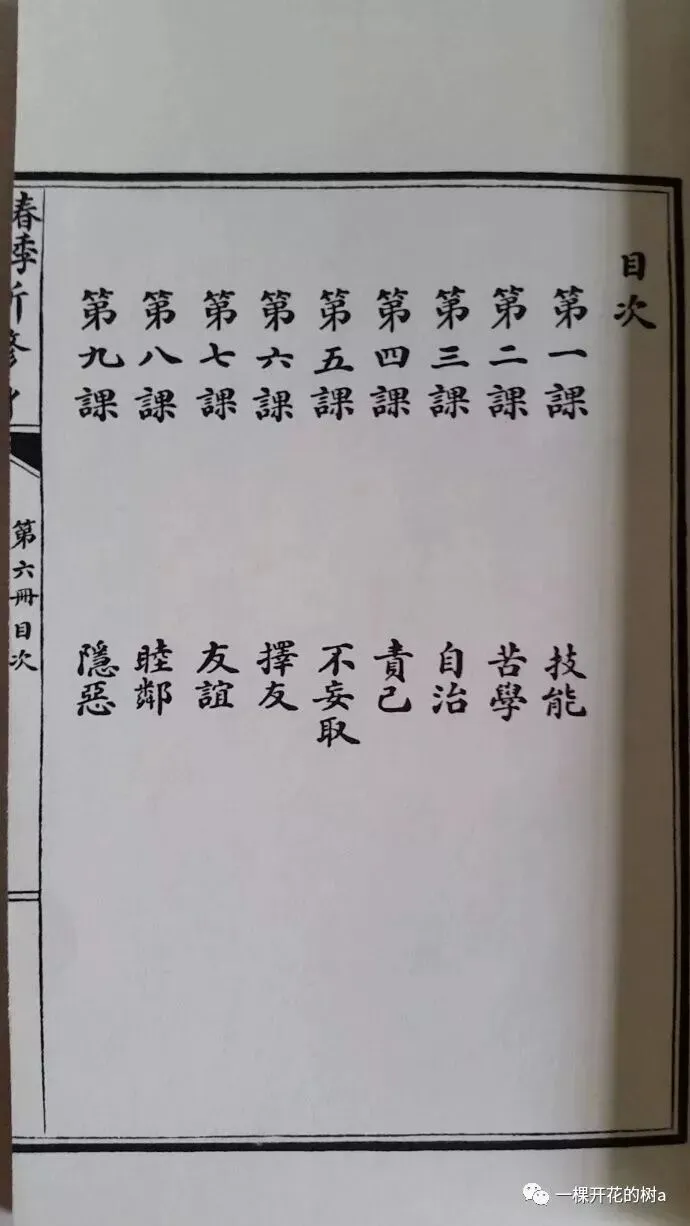 目次
第一課 技能
第二課 苦學
第三課 自治
第四課 責己
第五課 不妄取
第六課 擇友
第七課 友誼
第八課 睦鄰
第九課 隱惡
春季新修
第六冊目次
一棵开花的树a